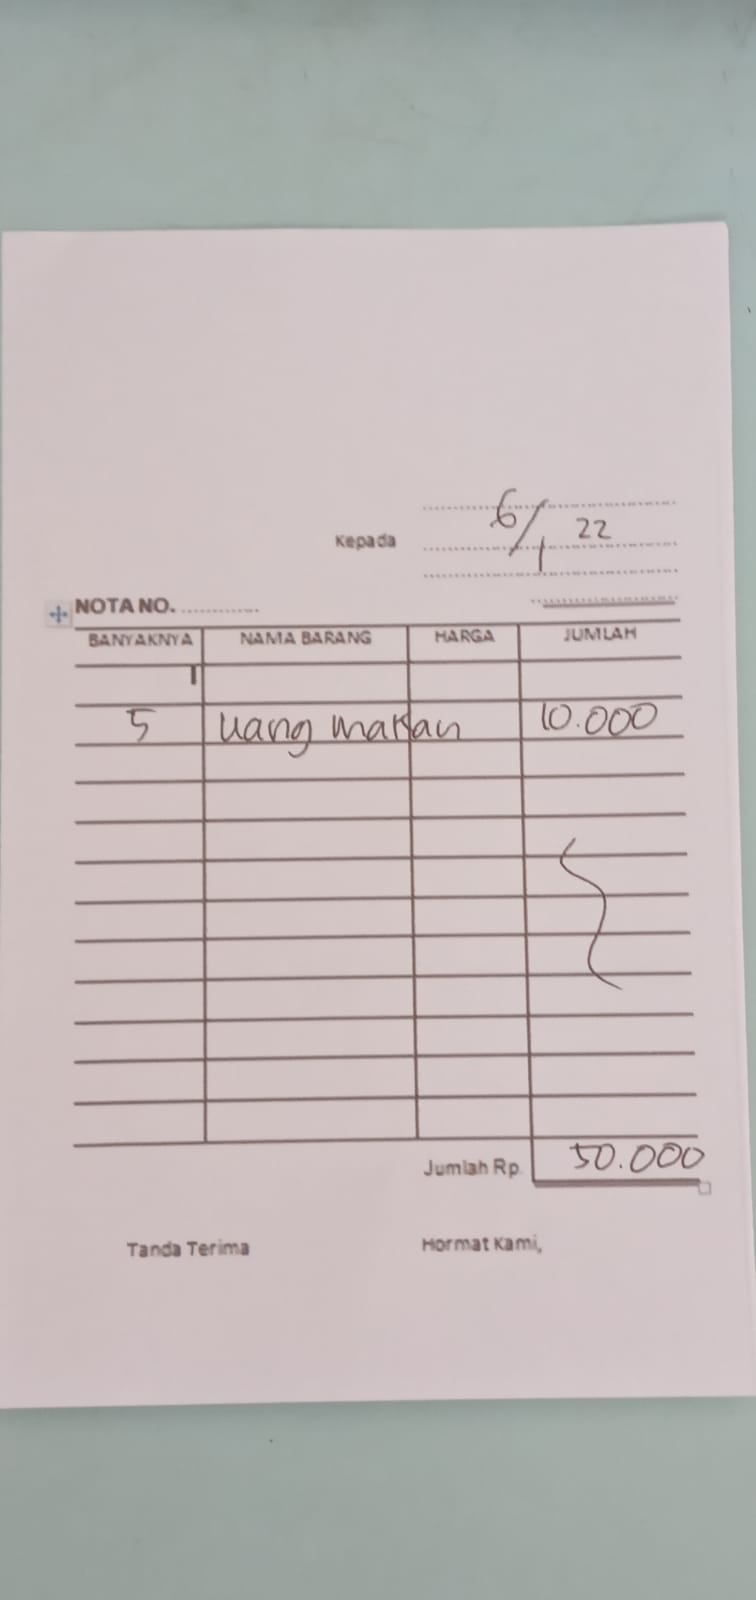 6/1 22
Kepada
NOTA NO. ..............
BANYAKNYA NAMA BARANG HARGA JUMLAH
5 uang makan 10.000
Jumlah Rp. 50.000
Tanda Terima Hormat Kami,